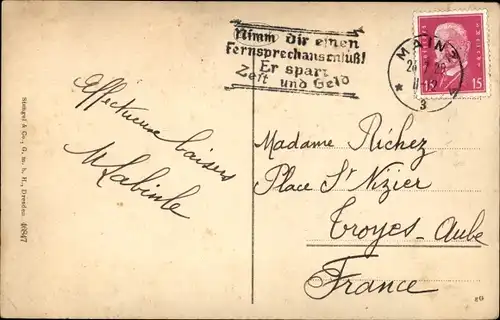 Nimm dir einen
Fernsprechanschluß!
Er spart
Zeit und Geld
MAINZ
3
15 15
Affectueux baisers
Madame Richez
Place St Nizier
Troyes-Aube
France
Stengel & Co., G. m. b. H., Dresden 49847